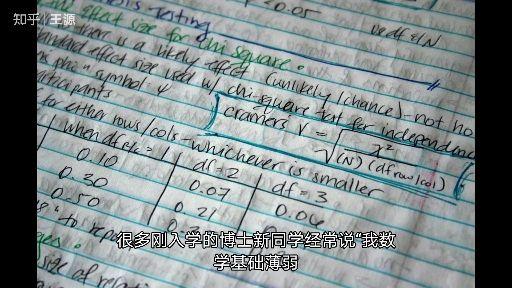 知乎 王源
Testing
<0.05
use df & N
effect size for chi square.
there is a likely effect (unlikely/chance) - not
effect size used w/ chi-square test for independence
phi = symbol: φ
participants
cramer's V = √ x²
(N)(df row/col)
for either rows/cols - whichever is smaller
when df r/c = 1 df = 2 df = 3
0.10 0.07 0.06
0.30 0.21
0.50
很多刚入学的博士新同学经常说“我数
学基础薄弱